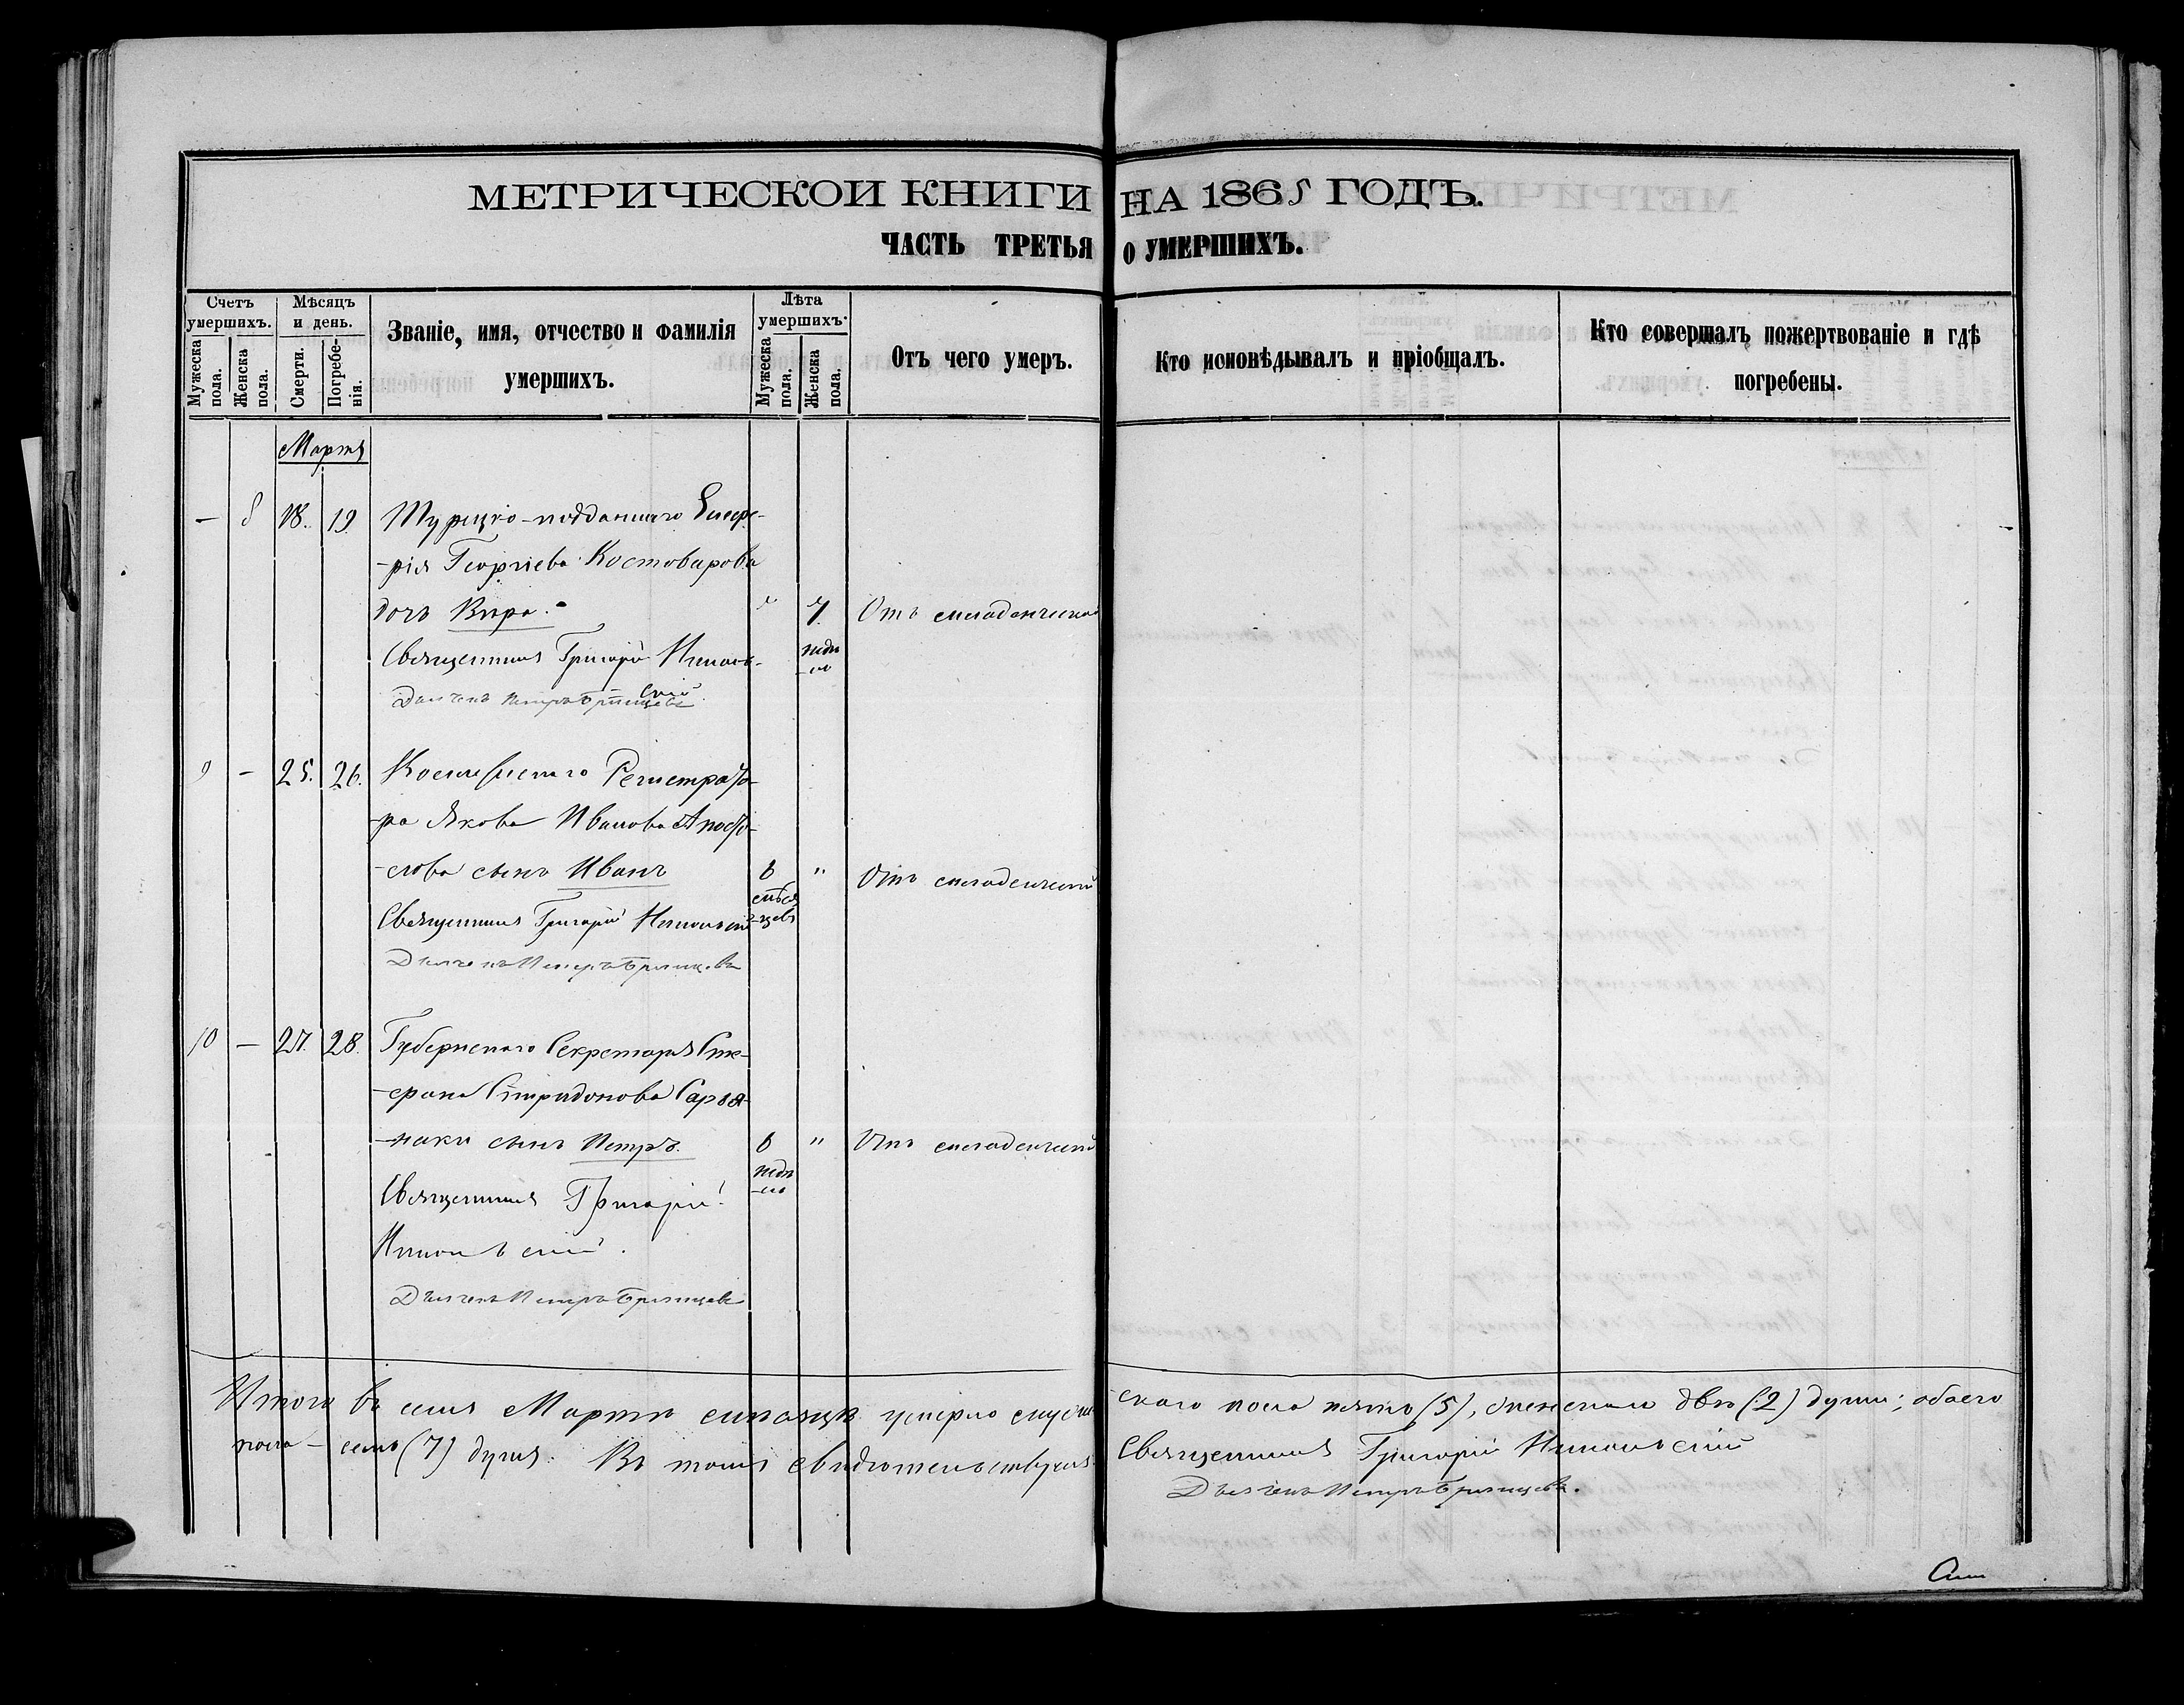 МЕТРИЧЕСКОЙ КНИГИ НА 1865 ГОДЪ.
ЧАСТЬ ТРЕТЬЯ О УМЕРШИХЪ.
Счетъ умершихъ.
Мужеска пола.
Женска пола.
Мѣсяцъ и день.
Смерти.
Погребенія.
Званіе, имя, отчество и фамилія умершихъ.
Лѣта умершихъ.
Мужеска пола.
Женска пола.
Отъ чего умеръ.
Кто исповѣдывалъ и пріобщалъ.
Кто совершалъ пожертвованіе и гдѣ погребены.
Марта
— 8 18. 19. Турецко-подданнаго
-рія Георгіева Костоварова
дочь Вѣра. " 7. Отъ младенческой
Священникъ Григорій Никольскій недѣль
Дьячекъ Петръ Брянцевъ
9 — 25. 26. Коллежскаго Регистрато-
-ра Якова Иванова Апосто-
-лова сынъ Иванъ 6 " Отъ младенческой
мѣся
Священникъ Григорій Никольскій -цевъ
Дьячекъ Петръ Брянцевъ
10 — 27. 28. Губернскаго Секретаря Сте-
-фана Спиридонова Саран-
-наки сынъ Петръ. 6 " Отъ младенческой
недѣль
Священникъ Григорій
Никольскій.
Дьячекъ Петръ Брянцевъ
Итого въ семъ Мартѣ мѣсяцѣ умерло мужескаго пола пять (5), женскаго двѣ (2) души; обоего
пола — семь (7) душъ. Въ томъ свидѣтельствуемъ Священникъ Григорій Никольскій
Дьячекъ Петръ Брянцевъ.